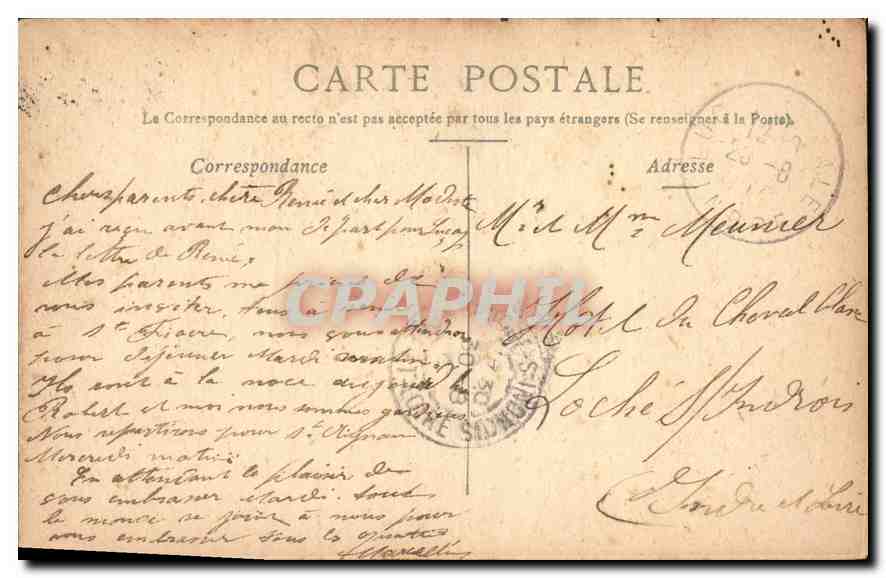 CARTE POSTALE
La Correspondance au recto n'est pas acceptée par tous les pays étrangers (Se renseigner à la Poste).
Correspondance
Chers parents, chère René et cher
j'ai reçu avant mon départ pour
la lettre de René,
Mes parents me prient de
vous inviter, tous à
à St Fiacre, nous vous
pour déjeuner Mardi matin
Ils sont à la noce
Robert et moi nous sommes
Nous repartirons pour St Aignan
Mercredi matin
En attendant le plaisir de
vous embrasser Mardi. tout
le monde se joint à nous pour
vous embrasser tous les quatre
Adresse
Mr et Mme Meunier
Hôtel du Cheval Blanc
Loché S/Indrois
Indre et Loire
CPAPHIL